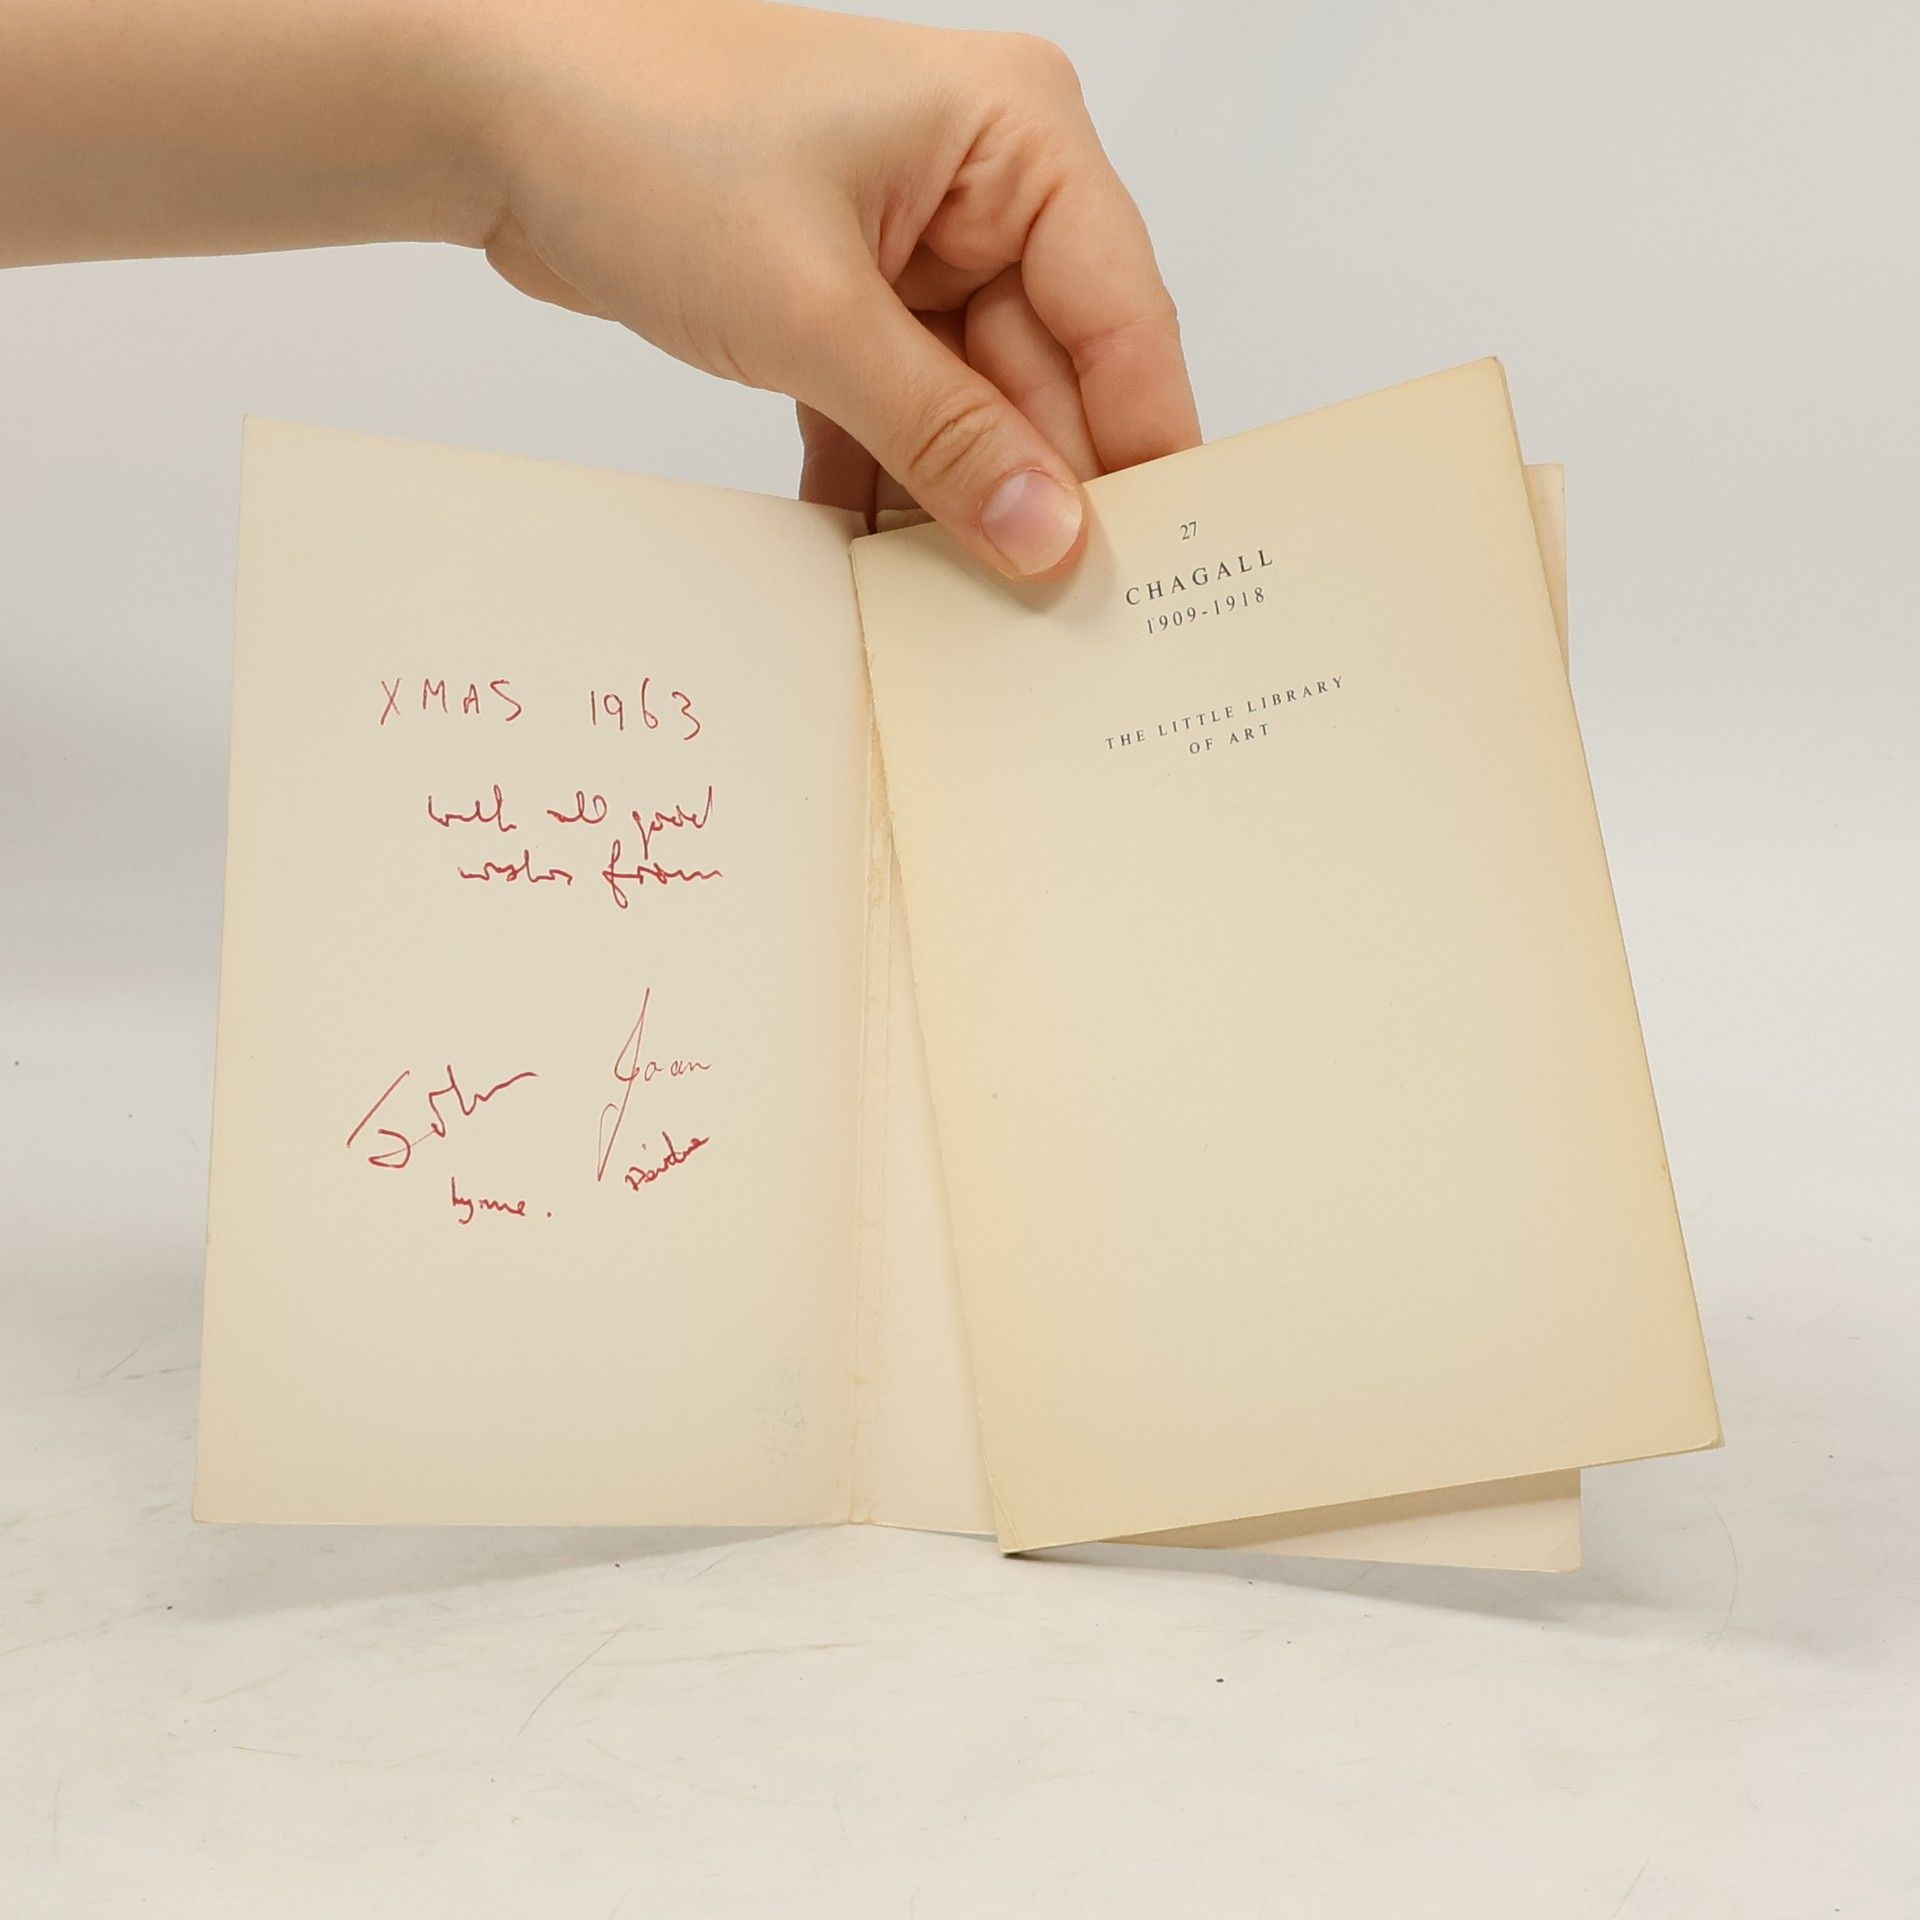 XMAS 1963
with all good
wishes from
John Joan
Lynne. Deirdre
27
CHAGALL
1909-1918
THE LITTLE LIBRARY
OF ART